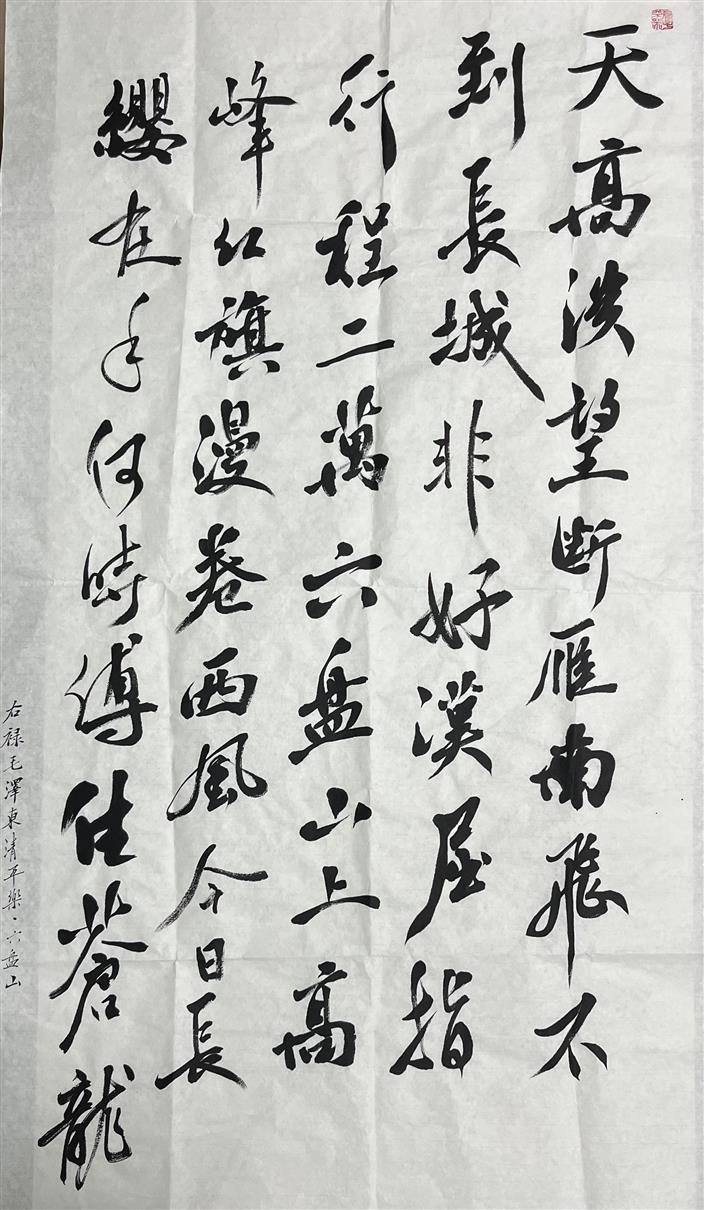 天高淡望断雁南飛不
到長城非好漢屈指
行程二萬六盘山上高
峰红旗漫卷西風今日長
纓在手何時縛住蒼龍
右禄毛澤東清平樂·六盘山